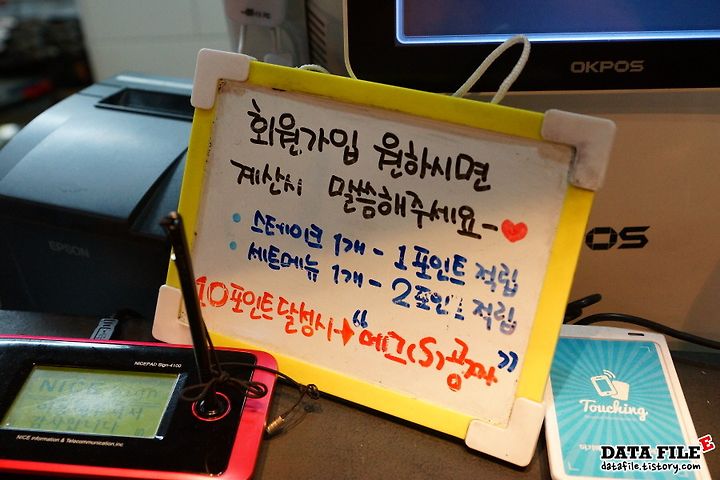 OKPOS
회원가입 원하시면
계산시 말씀해주세요~
• 스테이크 1개 - 1포인트 적립
• 세트메뉴 1개 - 2포인트 적립
10포인트달성시→ " (S)공짜 "
EPSON
POS
NICEPAD Sign-4100
NICE
NICE Information & Telecommunication,inc
Touching
DATA FILE
datafile.tistory.com